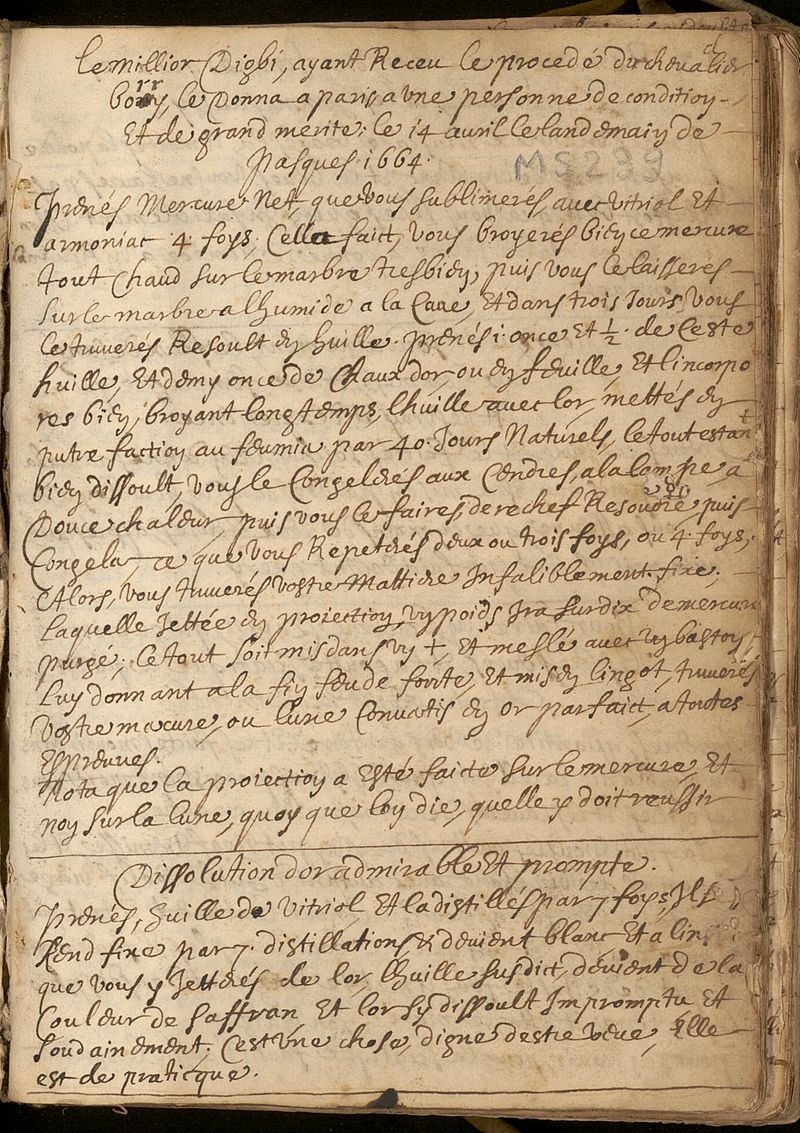 Le millior Digbi, ayant Receu le procedé du chevalier
borry, le Donna a paris a une personne de condition
Et de grand merite, le 14 avril le landemain de
Pasques 1664.
MS 299
Prenés Mercure Net, que vous sublimerés avec vitriol Et
armoniac 4 foys, Cella faict, vous broyerés bien ce mercure
tout Chaud sur le marbre tresbien, puis vous le laisseres
sur le marbre a lhumide a la Cave, Et dans trois Jours vous
le truverés Resoult en huille. prenés 1 once Et ½ de Ceste
huille, Et demy once de Chaux dor, ou en feuille, Et lincorpo
res bien, broyant longtemps, lhuille avec lor, mettés en
putrefaction au feumie par 40 Jours Naturels, le tout estant
bien dissoult, vous le Congelerés aux Cendres, a la lampe a
Douce chaleur, puis vous le faires derechef Resoudre puis
Congela, ce que vous Repeterés deux ou trois foys, ou 4 foys,
Alors, vous truverés vostre Mattiere Infaliblement fixe,
Laquelle Jettée en proiection, un poids Ira sur dix de mercure
purgé; le tout soit mis dans un +, Et meslé avec un baston,
Luy donnant a la fin feu de forte, Et mis en lingot, truverés
vostre mercure, ou lune Convertis en or parfaict, a toutes
Espreuves.
Nota que la proiection a Esté faicte sur le mercure, Et
non sur la lune, quoy que lon die, quelle y doit reussir
Dissolution dor admirable Et prompte.
Prenés, huille de vitriol Et la distillés par 7 foys, Il se
Rend fixe par 7 distillations & devient blanc Et a lins
que vous y Jetterés de lor, lhuille susdict, devient de la
Couleur de saffran Et lor sy dissoult Impromptu Et
soudainement. Cest une chose, digne destre veue, Elle
est de praticque.